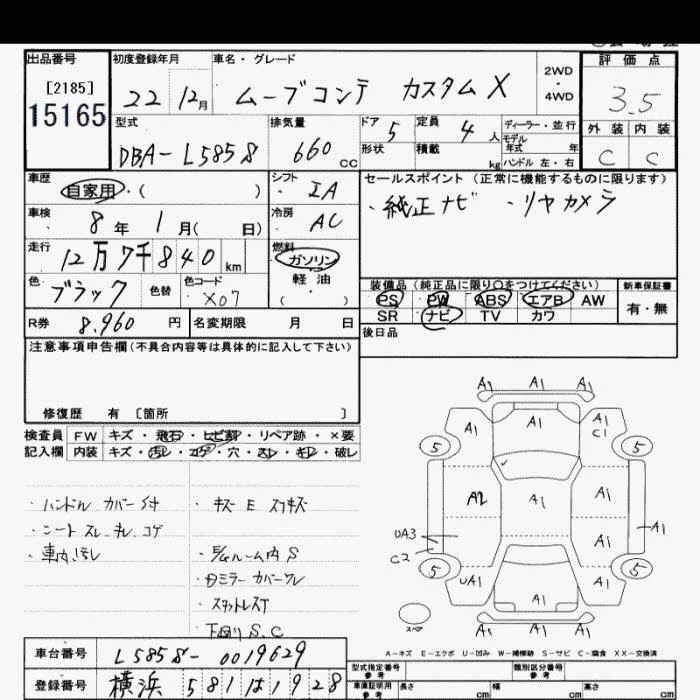 出品番号
[2185]
15165
初度登録年月
22 12月
車名・グレード
ムーブコンテ カスタムX
2WD
4WD
評価点
3.5
外装 内装
C C
型式
DBA-L585S
排気量
660 CC
ドア 5
形状
定員 4 人
積載 kg
ディーラー・並行
モデル年式 年
ハンドル 左・右
車歴
自家用・( )
シフト
IA
車検
8年 1月( 日)
冷房
AC
セールスポイント(正常に機能するものに限ります)
・純正ナビ ・リヤカメラ
走行
12万7千840 km
燃料
ガソリン
軽油
( )
色
ブラック
色替
色コード
X07
装備品(純正品に限り○をつけてください)
PS PW ABS エアB AW
SR ナビ TV カワ
新車保証書
有・無
R券 8,960 円
名変期限 月 日
後日品
注意事項申告欄(不具合内容等は具体的に記入して下さい)
修復歴 有 〔箇所 〕
検査員記入欄
FW キズ・飛石・ヒビ割・リペア跡・×要
内装 キズ・汚レ・コゲ・穴・スレ・キレ・破レ
・ハンドルカバー付
・シートスレ.キレ.コゲ
・車内汚レ
・キズ E スリキズ
・下回リS.C
A1 A1 A1
A1 A1 A1
C1
5 5
A2 A1 A1
UA3
C2
A1
A1
5 5
UA1 A1 A1
A1 A1 A1
スペア
A-キズ E-エクボ U-凹み W-補修跡 S-サビ C-腐食 XX-交換済
車台番号 L585S-0019629
登録番号 横浜 581 は1928
型式指定番号 参考
類別区分番号 参考
車庫証明用 参考
長さ cm 幅 cm 高さ cm